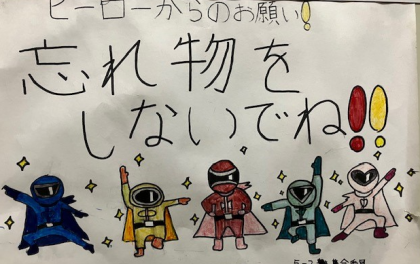 ヒーローからのお願い!
忘れ物を
しないでね!!